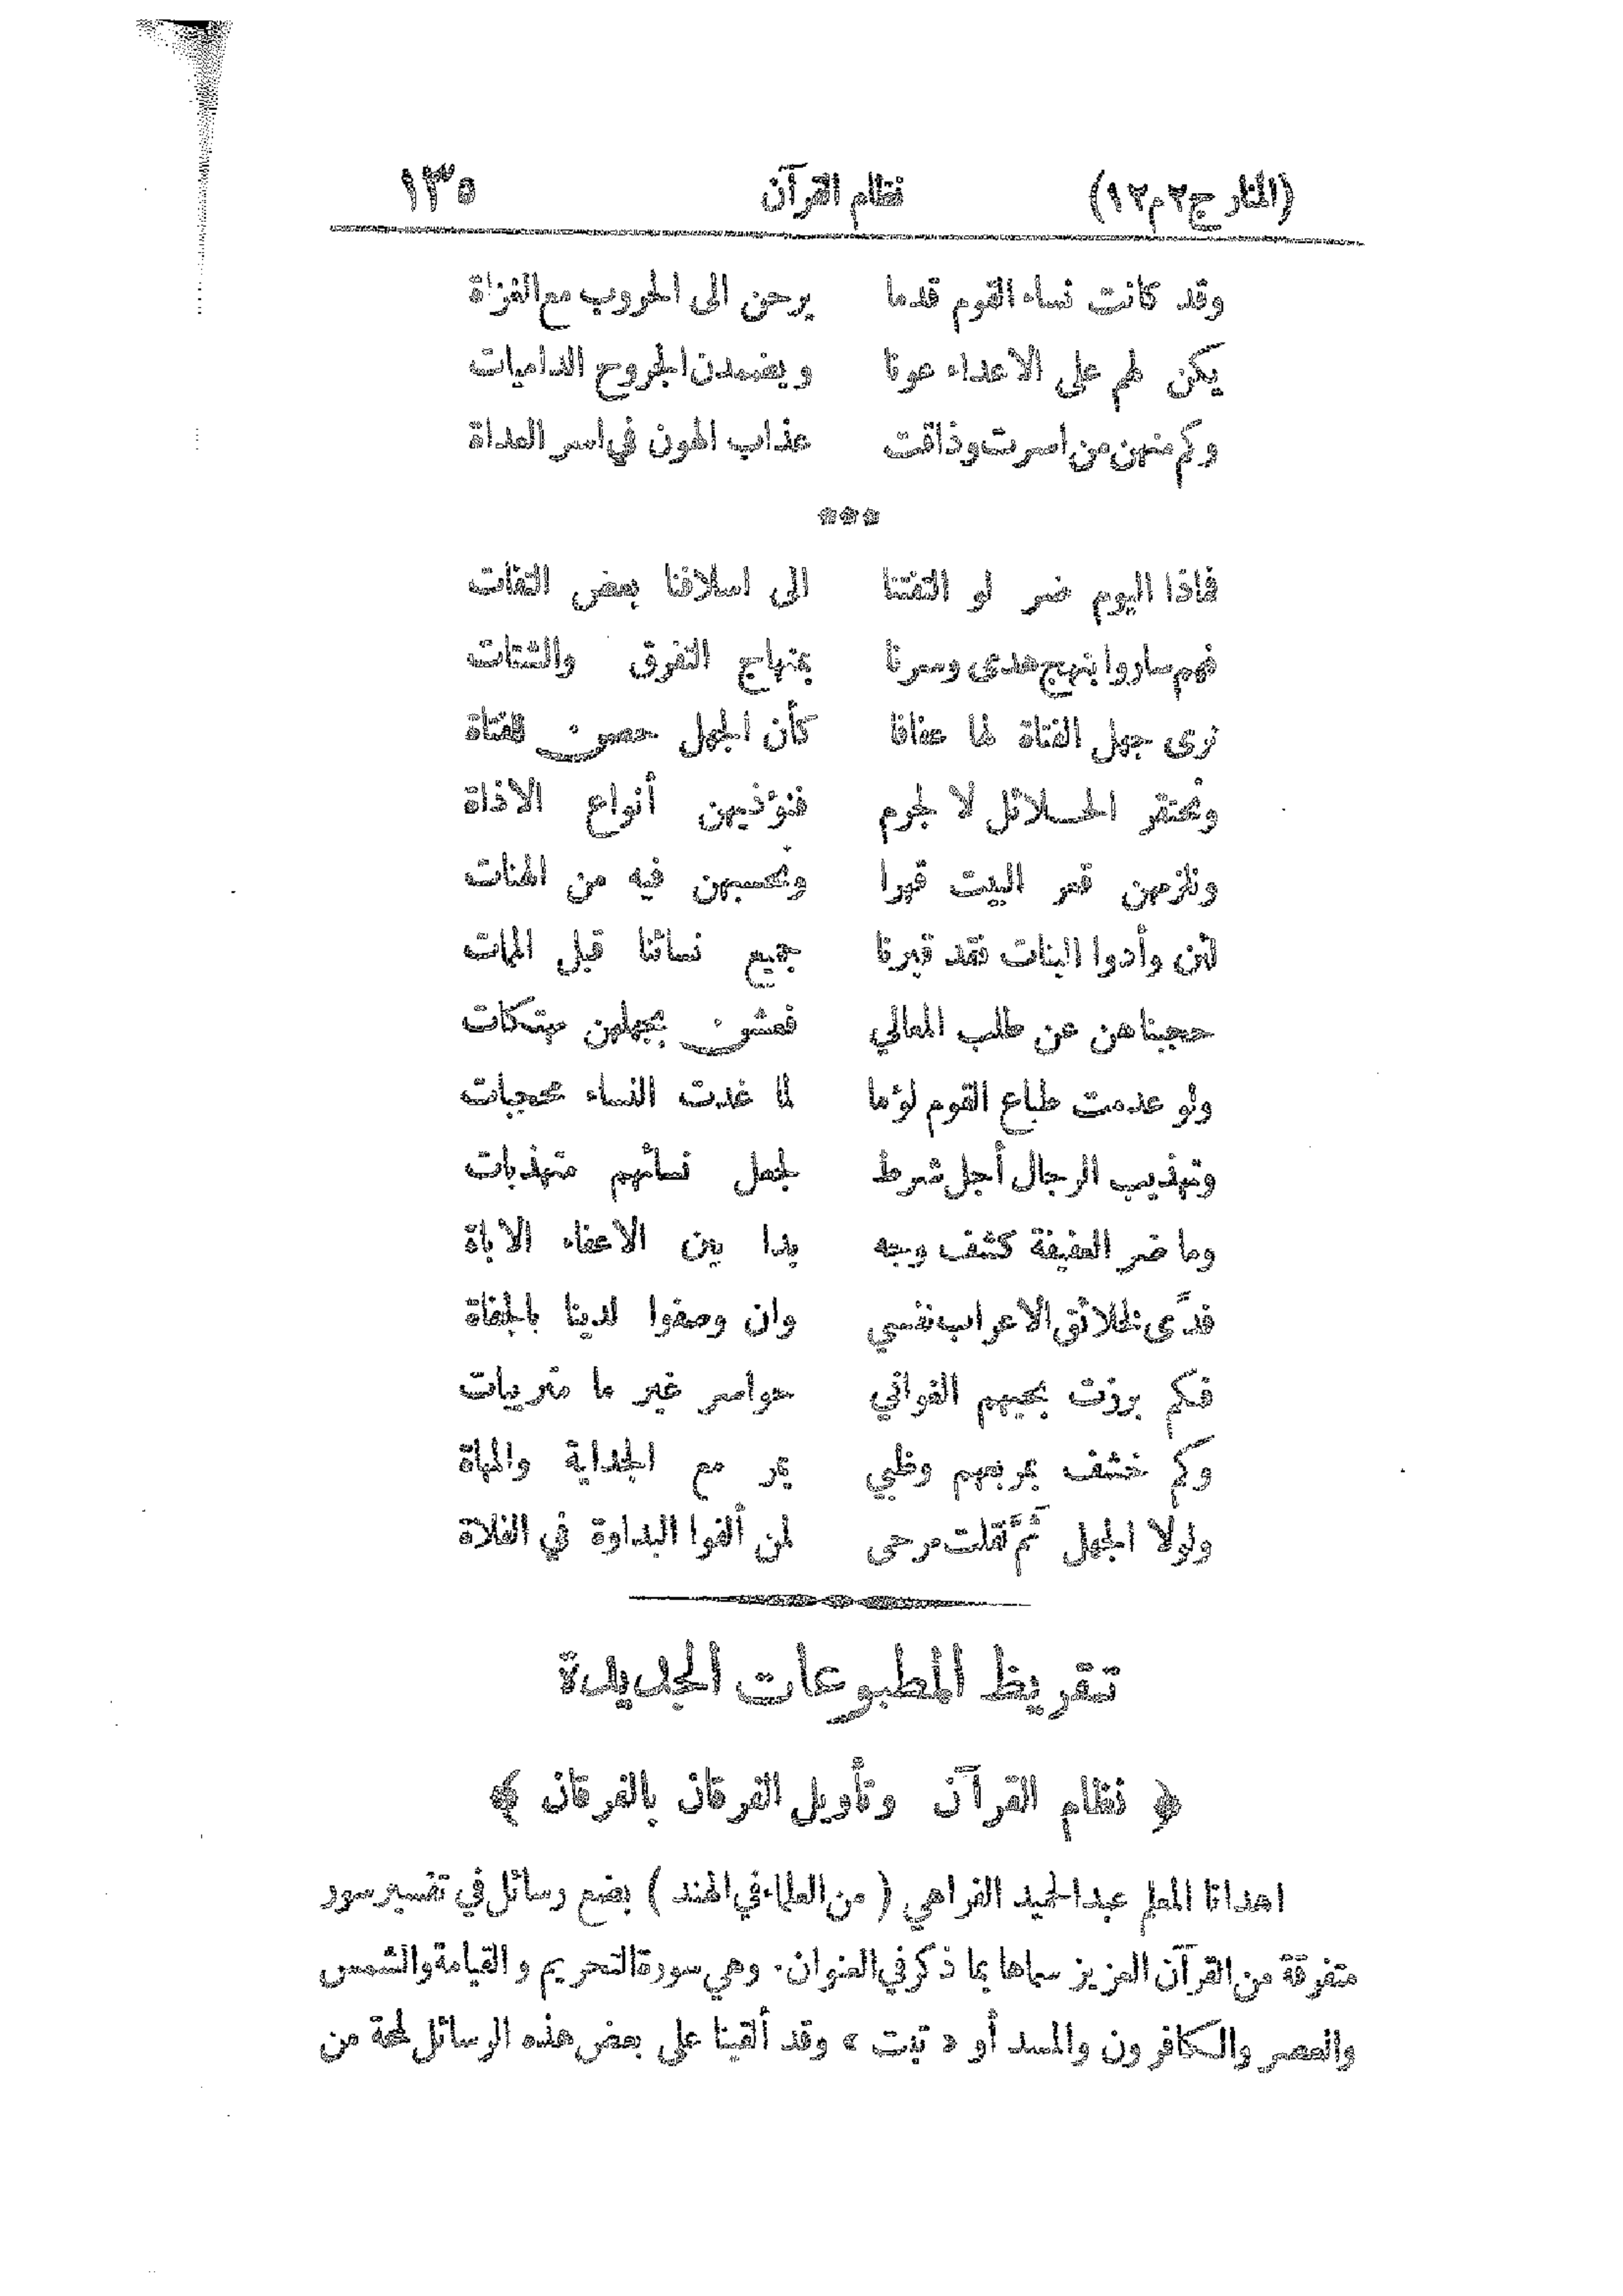 (المنار ج٢ م١٢) نظام القرآن ١٣٥
وقد كانت نساء القوم قدما يرحن الى الحروب مع الغزاة
يكن لهم على الاعداء عونا ويضمدن الجروح الداميات
وكم منهن من اسرت وذاقت عذاب الهون في اسر العداة
***
فماذا اليوم ضر لو التفتنا الى اسلافنا بعض التفات
فهم ساروا بنهج هدى وسرنا بمنهاج التفرق والشتات
نرى جهل الفتاة لها عفافا كأن الجهل حصون للفتاة
ونحتقر الحلائل لا لجرم فنؤذيهن أنواع الاذاة
ونلزمهن قعر البيت قهرا ونحسبهن فيه من الهنات
لئن وأدوا البنات فقد قبرنا جميع نسائنا قبل الممات
حجبناهن عن طلب المعالي فعشن بجهلهن مهتكات
ولو عدمت طباع القوم لؤما لما غدت النساء محجبات
وتهذيب الرجال أجل شرط لجعل نسائهم متهذبات
وما ضر العفيفة كشف وجه بدا بين الاعفاء الاباة
فدًى لخلائق الاعراب نفسي وان وصفوا لدينا بالجفاة
فكم برزت بحيهم الغواني حواسر غير ما متريبات
وكم خشف بمربعهم وظبي يمر مع الجداية والمهاة
ولولا الجهل ثَمَّ لقلت مرحى لمن ألفوا البداوة في الفلاة
تقريظ المطبوعات الجديدة
﴿ نظام القرآن وتأويل الفرقان بالفرقان ﴾
اهدانا المعلم عبد الحميد الفراهي ( من العلماء في الهند ) بضع رسائل في تفسير سور
متفرقة من القرآن العزيز سماها بما ذكر في العنوان. وهي سورة التحريم والقيامة والشمس
والعصر والكافرون والمسد أو « تبت » وقد ألقينا على بعض هذه الرسائل لمحة من